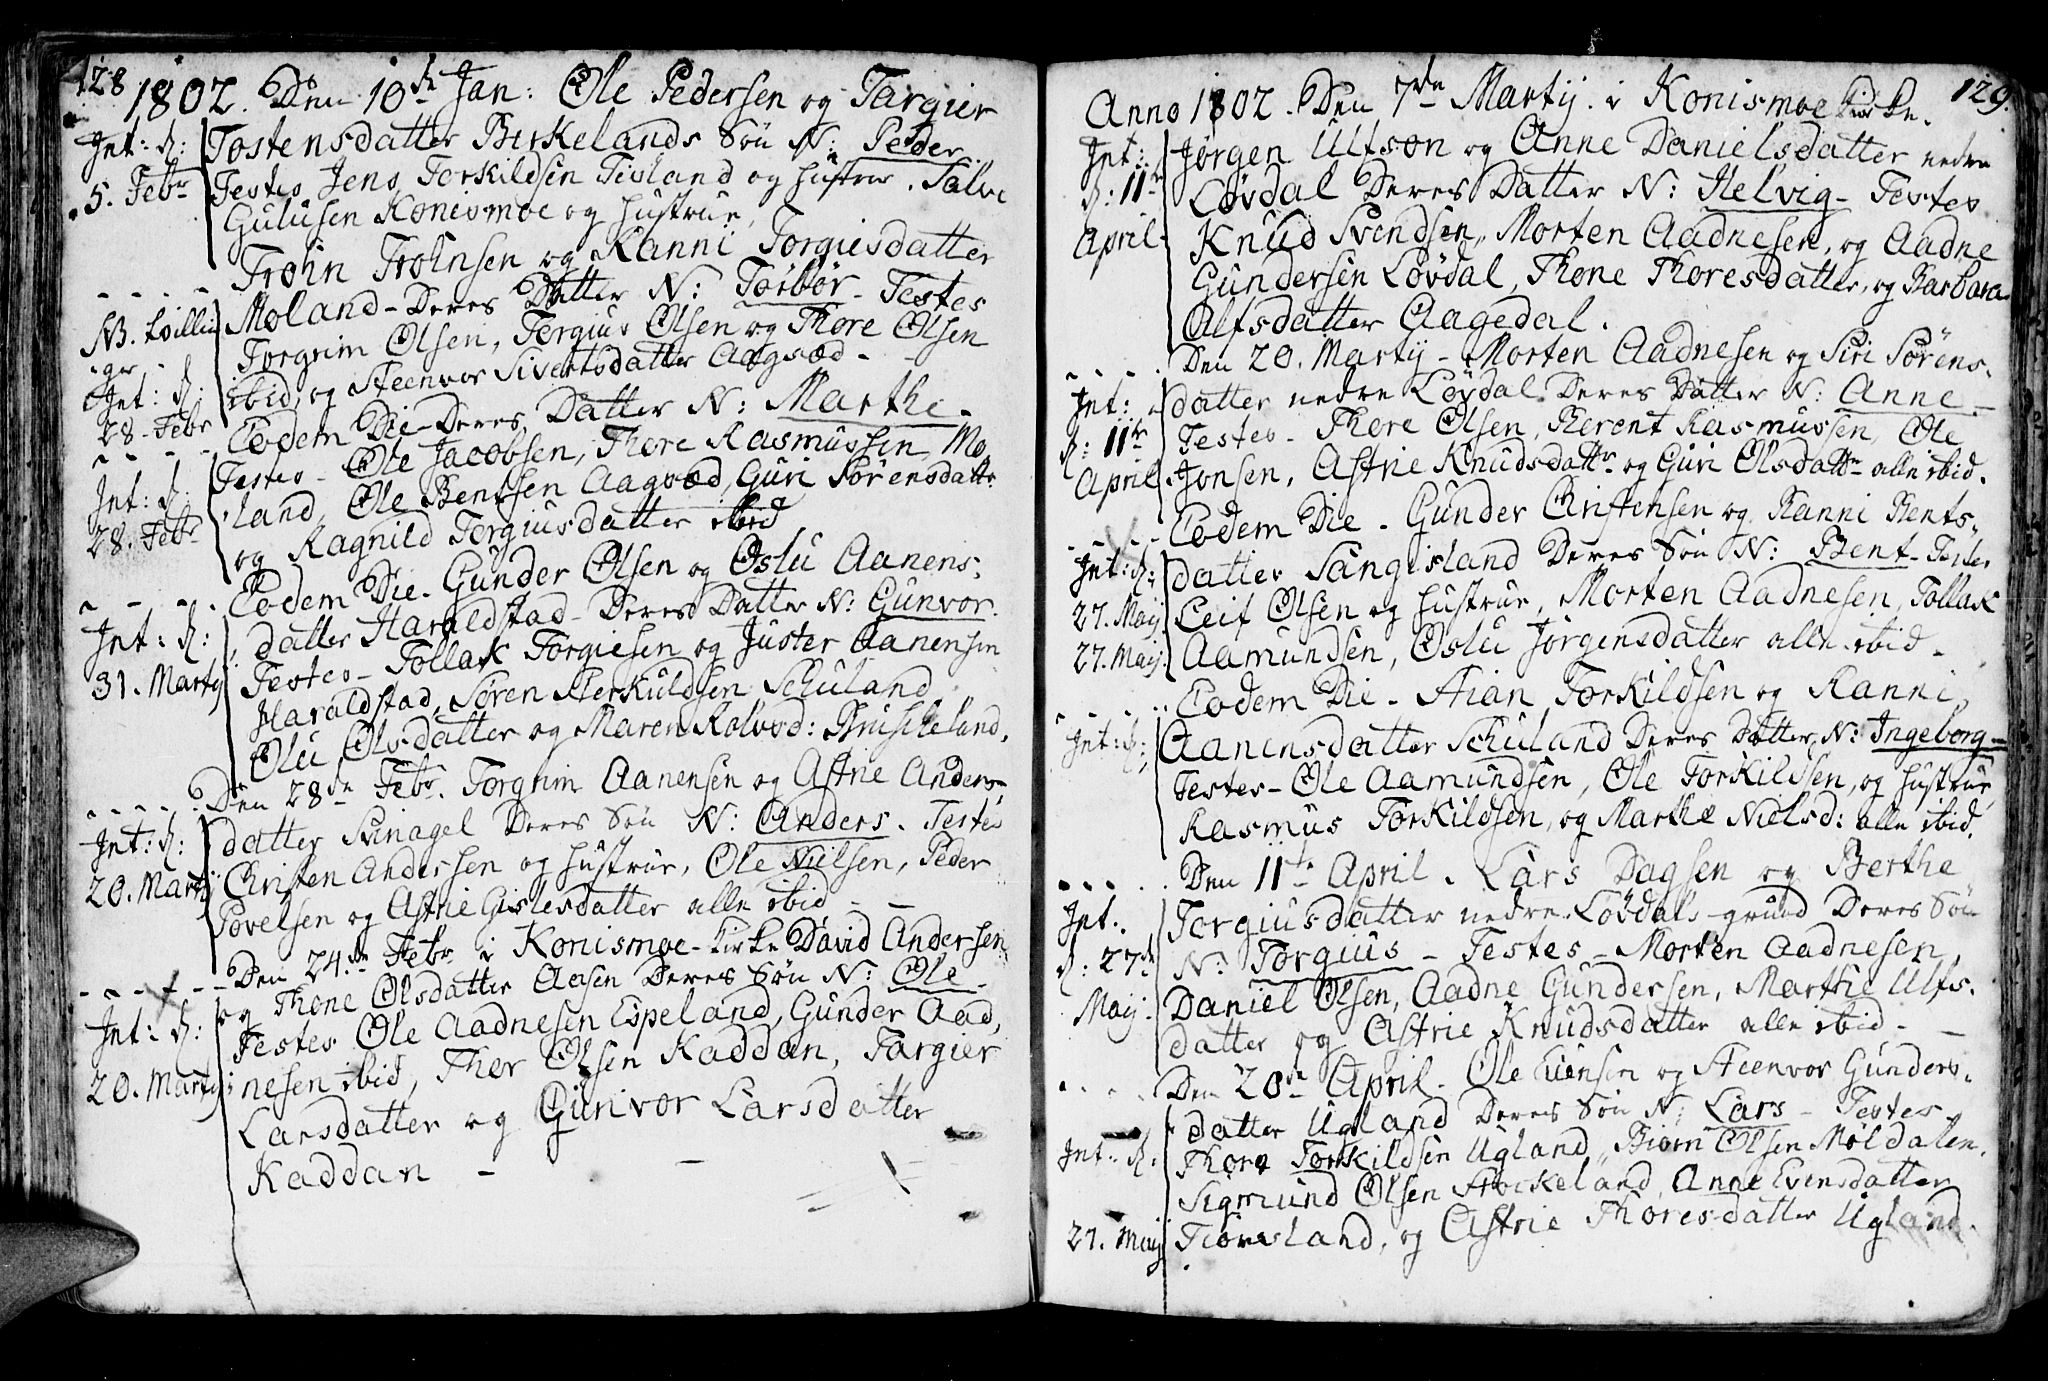 128
1802. Den 10de Jan: Ole Pedersen og Targier
Int: R: Tostensdatter Birkelands Søn N: Peder.
5. Febr Testes Jens Torkildsen Tisland og hustrue. Salve
Gulusen Konismoe og hustrue,
Trohn Trohnsen og Ranni Torgiesdatter
Moland - Deres Datter N: Torbor - Testes
NB. Torgrim Olsen, Torgius Olsen og Thore Olsen
Int: R: ibid, og Steenvor Sivertsdatter Aagsæd -
28. Febr Eodem Die - Deres Datter N: Marthe -
Testes - Ole Jacobsen, Thore Rasmussen Mo,
Int: R: land, Ole Bentsen Aagsæd, Guri Sørensdattr
28. Febr og Ragnild Torgiusdatter ibid
Eodem Die. Gunder Olsen og Oslu Aanens,
Int: R: datter Haraldstad - Deres Datter N: Gunvor.
31. Martij Testes - Tollak Torgiesen og Juster Aanensen
Haraldstad, Søren Sterkuldsen Schuland
Olu Olsdatter og Maren Rolvsd: Bruskeland,
Den 28de Febr. Torgrim Aanensen og Astrie Anders-
Int: R: datter Svinagel Deres Søn N: Anders. Testes
20. Martij Christen Andersen og hustrue, Ole Nielsen, Peder
Povelsen og Astrie Gislesdatter alle ibid - -
Den 24de Febr i Konismoe - Kirke David Andersen
og Thone Olsdatter Aasen Deres Søn N: Ole -
Int: R: Testes Ole Aadnesen Espeland, Gunder Aad,
20. Martij nesen ibid, Thor Olsen Kaddan, Targier
Larsdatter og Gunvor Larsdatter
Kaddan -
129.
Anno 1802. Den 7de Martij i Konismoe Kirke.
Int: Jørgen Ulfson og Anne Danielsdatter nedre
R: 11te Løvdal Deres Datter N: Helvig - Testes
April. Knud Svendsen, Morten Aadnesen, og Aadne
Gundersen Løvdal, Thone Thoresdatter, og Barbara
Alfsdatter Aagedal.
Den 20. Martij - Morten Aadnesen og Siri Sørens,
Int: datter nedre Løvdal Deres Datter N: Anne -
R: 11te Testes - Thore Olsen, Berent Rasmussen, Ole
April. Jonsen, Astrie Knudsdattr og Guri Olsdattr alle ibid.
Eodem Die - Gunder Christensen og Ranni Bents,
Int: R: datter Sangisland Deres Søn N: Bent - Testes
27. Maij Leif Olsen og hustrue, Morten Aadnesen, Tollak
27. Maij. Aamundsen, Oslu Jørgensdatter alle ibid -
Eodem Die - Stian Torkildsen og Ranni
Int: R: Aanensdatter Schuland Deres Datter N: Ingeborg -
Testes - Ole Aamundsen, Ole Torkildsen, og hustrue,
Rasmus Torkildsen, og Marthe Nielsd: alle ibid.
Den 11te April. Lars Dagsen og Berthe
Int: Torgiusdatter nedre Løvdals - grund Deres Søn
R: 27de N: Torgius - Testes - Morten Aadnesen
Maij. Daniel Olsen, Aadne Gundersen, Marthe Ulfs,
datter og Astrie Knudsdatter alle ibid -
Den 20de April. Ole Evensen og Steenvor Gunders,
datter Ugland Deres Søn N: Lars - Testes -
Int: R: Thore Torkildsen Ugland, Biørn Olsen Møldalen,
Sigmund Olsen Stockeland, Anne Evensdatter
27. Maij Tiørsland, og Astrie Thoresdatter Ugland.